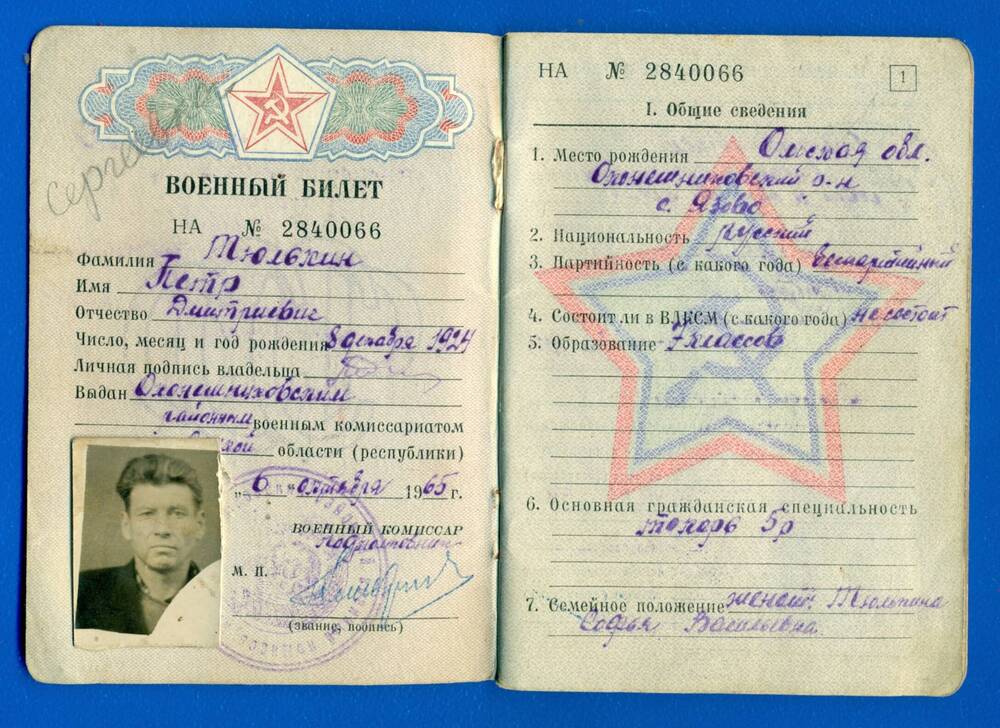 Сергей
ВОЕННЫЙ БИЛЕТ
НА № 2840066
Фамилия Тюлькин
Имя Петр
Отчество Дмитриевич
Число, месяц и год рождения 8 декабря 1924
Личная подпись владельца
Выдан Оконешниковским
районным военным комиссариатом
области (республики)
„6" октября 1965 г.
ВОЕННЫЙ КОМИССАР
Подполковник
М. П.
(звание, подпись)
НА № 2840066
1
I. Общие сведения
1. Место рождения Омская обл.
Оконешниковский р-н
с. Язово
2. Национальность русский
3. Партийность (с какого года) беспартийный
4. Состоит ли в ВЛКСМ (с какого года) не состоит
5. Образование 7 классов
6. Основная гражданская специальность
токарь 5р
7. Семейное положение женат. Тюлькина
Софья Васильевна